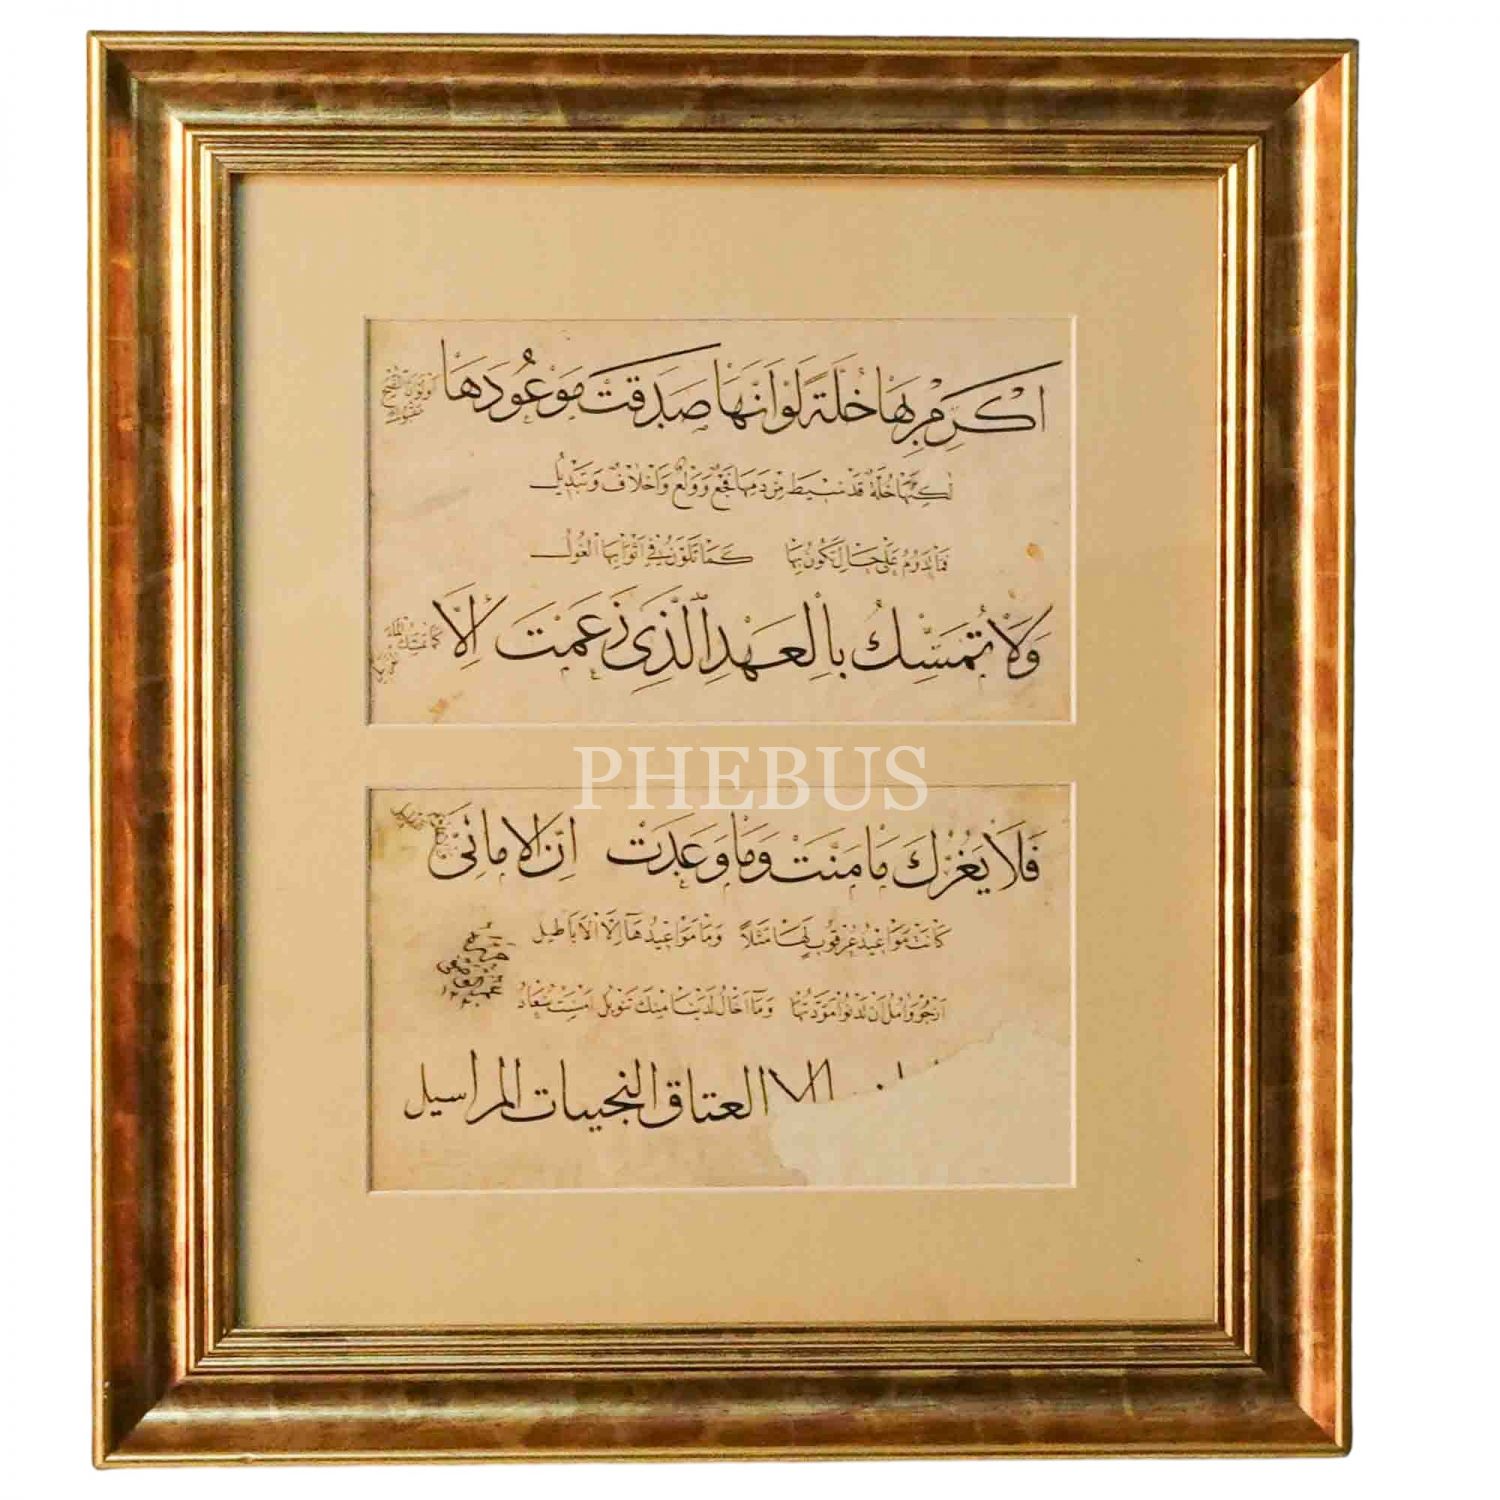 اَكْرِمْ بِهَا خُلَةً لَوْ اَنَّهَا صَدَقَتْ مَوْعُودَهَا
اَوْ لَوْ اَنَّ النُّصْحَ مَقْبُولُ
لٰكِنَّهَا خُلَّةٌ قَدْ سِيطَ مِنْ دَمِهَا فَجْعٌ وَوَلْعٌ وَاَخْلَافٌ وَتَبْدِيلُ
فَمَا تَدُومُ عَلٰى حَالٍ تَكُونُ بِهَا كَمَا تَلَوَّنُ فِي اَثْوَابِهَا الْغُولُ
وَلَا تُمَسِّكُ بِالْعَهْدِ الَّذِي زَعَمَتْ اِلَّا
كَمَا تُمْسِكُ الْمَاءَ
PHEBUS
فَلَا يَغُرَّنْكَ مَا مَنَّتْ وَمَا وَعَدَتْ اِنَّ الْاَمَانِيَّ
كَانَتْ مَوَاعِيدُ عُرْقُوبٍ لَهَا مَثَلًا وَمَا مَوَاعِيدُهَا اِلَّا الْاَبَاطِيلُ
اَرْجُو وَاٰمُلُ اَنْ تَدْنُو مَوَدَّتُهَا وَمَا اَخَالُ لَدَيْنَا مِنْكَ تَنْوِيلُ اَمْسَتْ سُعَادُ
اِلَّا العتاق النجيبات المراسيل